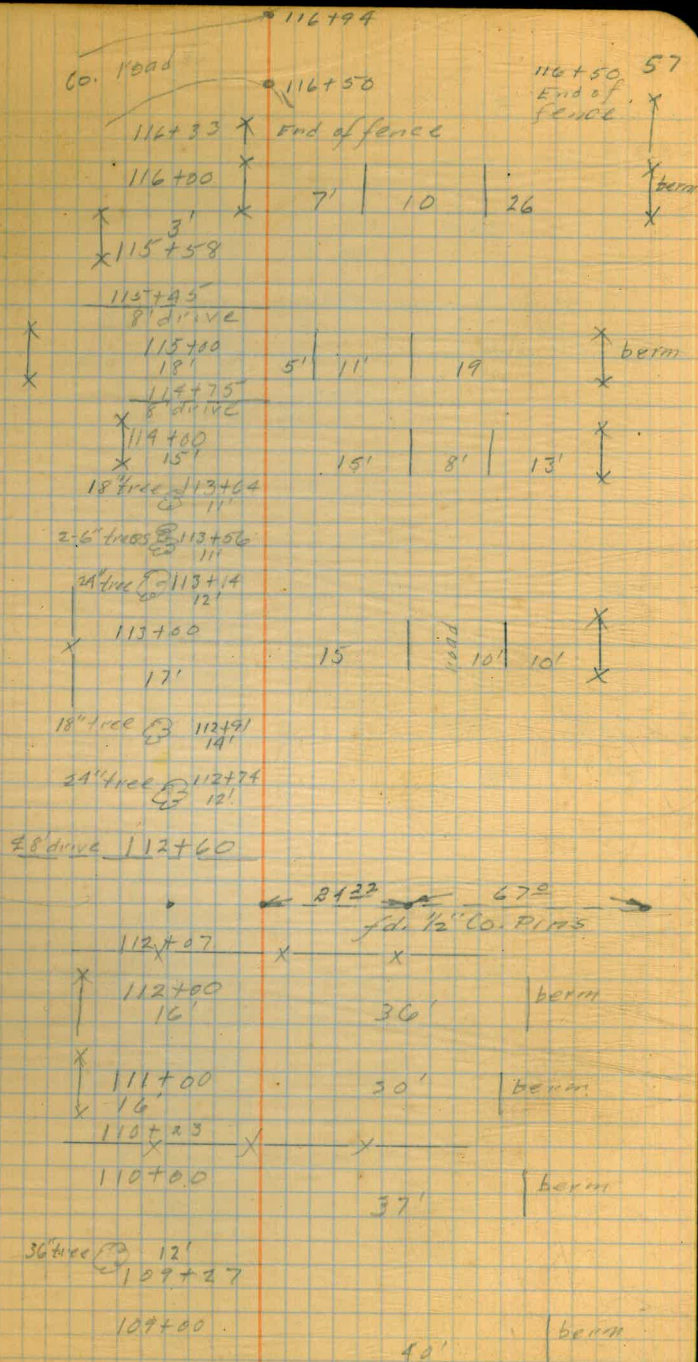 116+94
57
Co. road
116+50
116+50
End of
fence
116+33 End of fence
116+00
7' 10 26 berm
3'
115+58
115+45
8' drive
115+00
18' 5' 11' 19 berm
114+75
8' drive
114+00
15' 15' 8' 13'
18" tree 113+64
11'
2-6" trees 113+56
11'
24" tree 113+14
12'
113+00
15 road 10' 10'
17'
18" tree 112+91
14'
24" tree 112+74
12'
℄ 8' drive 112+60
24 22 67 0
fd. 1/2" Co. Pins
112+07
112+00 berm
16' 36'
111+00 30' berm
16'
110+23
110+00 berm
37'
36" tree 12'
109+27
109+00 berm
40'